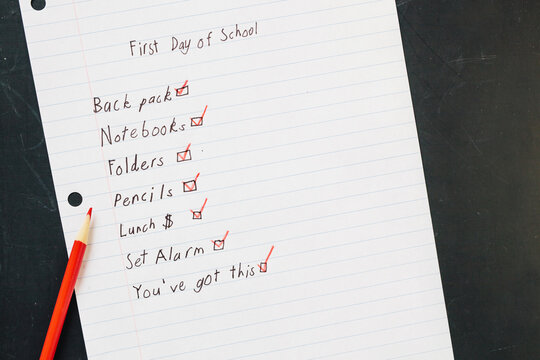 First Day of School
Back pack
Notebooks
Folders
Pencils
Lunch $
Set Alarm
You've got this